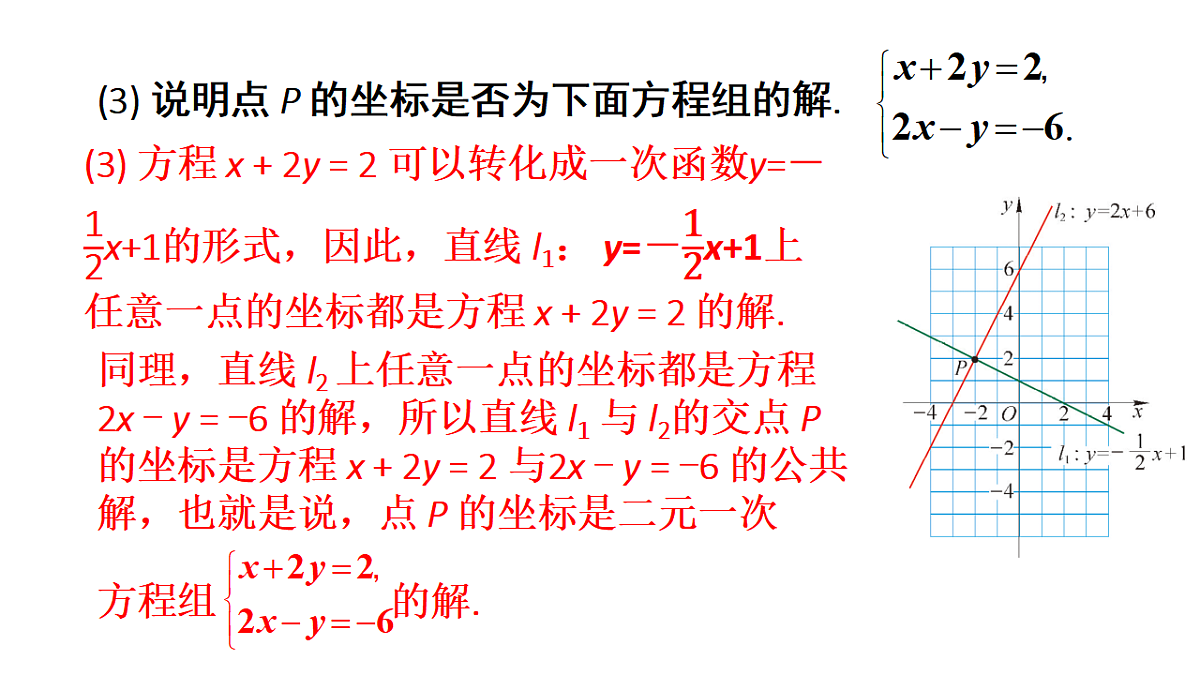 (3) 说明点 P 的坐标是否为下面方程组的解.
{x+2y=2,
2x−y=−6.
(3) 方程 x + 2y = 2 可以转化成一次函数y=－
1/2 x+1的形式，因此，直线 l₁： y=－1/2 x+1上
任意一点的坐标都是方程 x + 2y = 2 的解.
同理，直线 l₂ 上任意一点的坐标都是方程
2x − y = −6 的解，所以直线 l₁ 与 l₂的交点 P
的坐标是方程 x + 2y = 2 与2x − y = −6 的公共
解，也就是说，点 P 的坐标是二元一次
方程组 {x+2y=2,
2x−y=−6 的解.
y
l₂: y=2x+6
6
4
2
P
−4 −2 O 2 4 x
−2
l₁: y=−1/2 x+1
−4